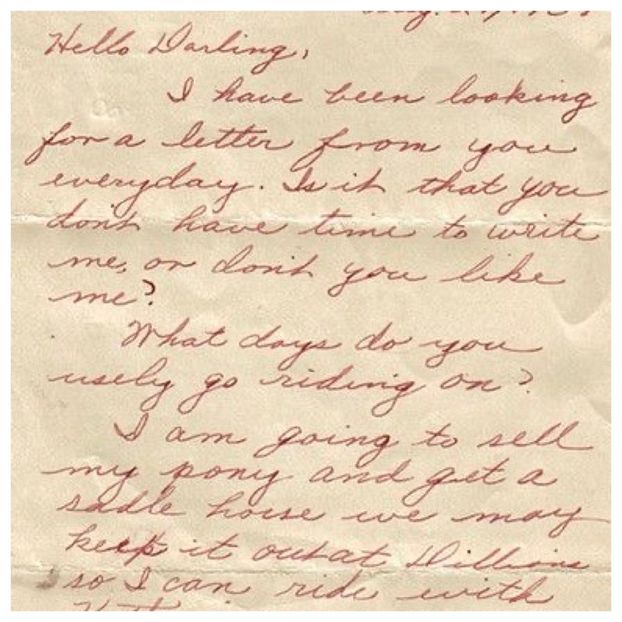 Hello Darling,
I have been looking
for a letter from you
everyday. Is it that you
don't have time to write
me, or don't you like
me?
What days do you
usely go riding on?
I am going to sell
my pony and get a
sadle horse we may
keep it out at Dillions
so I can ride with